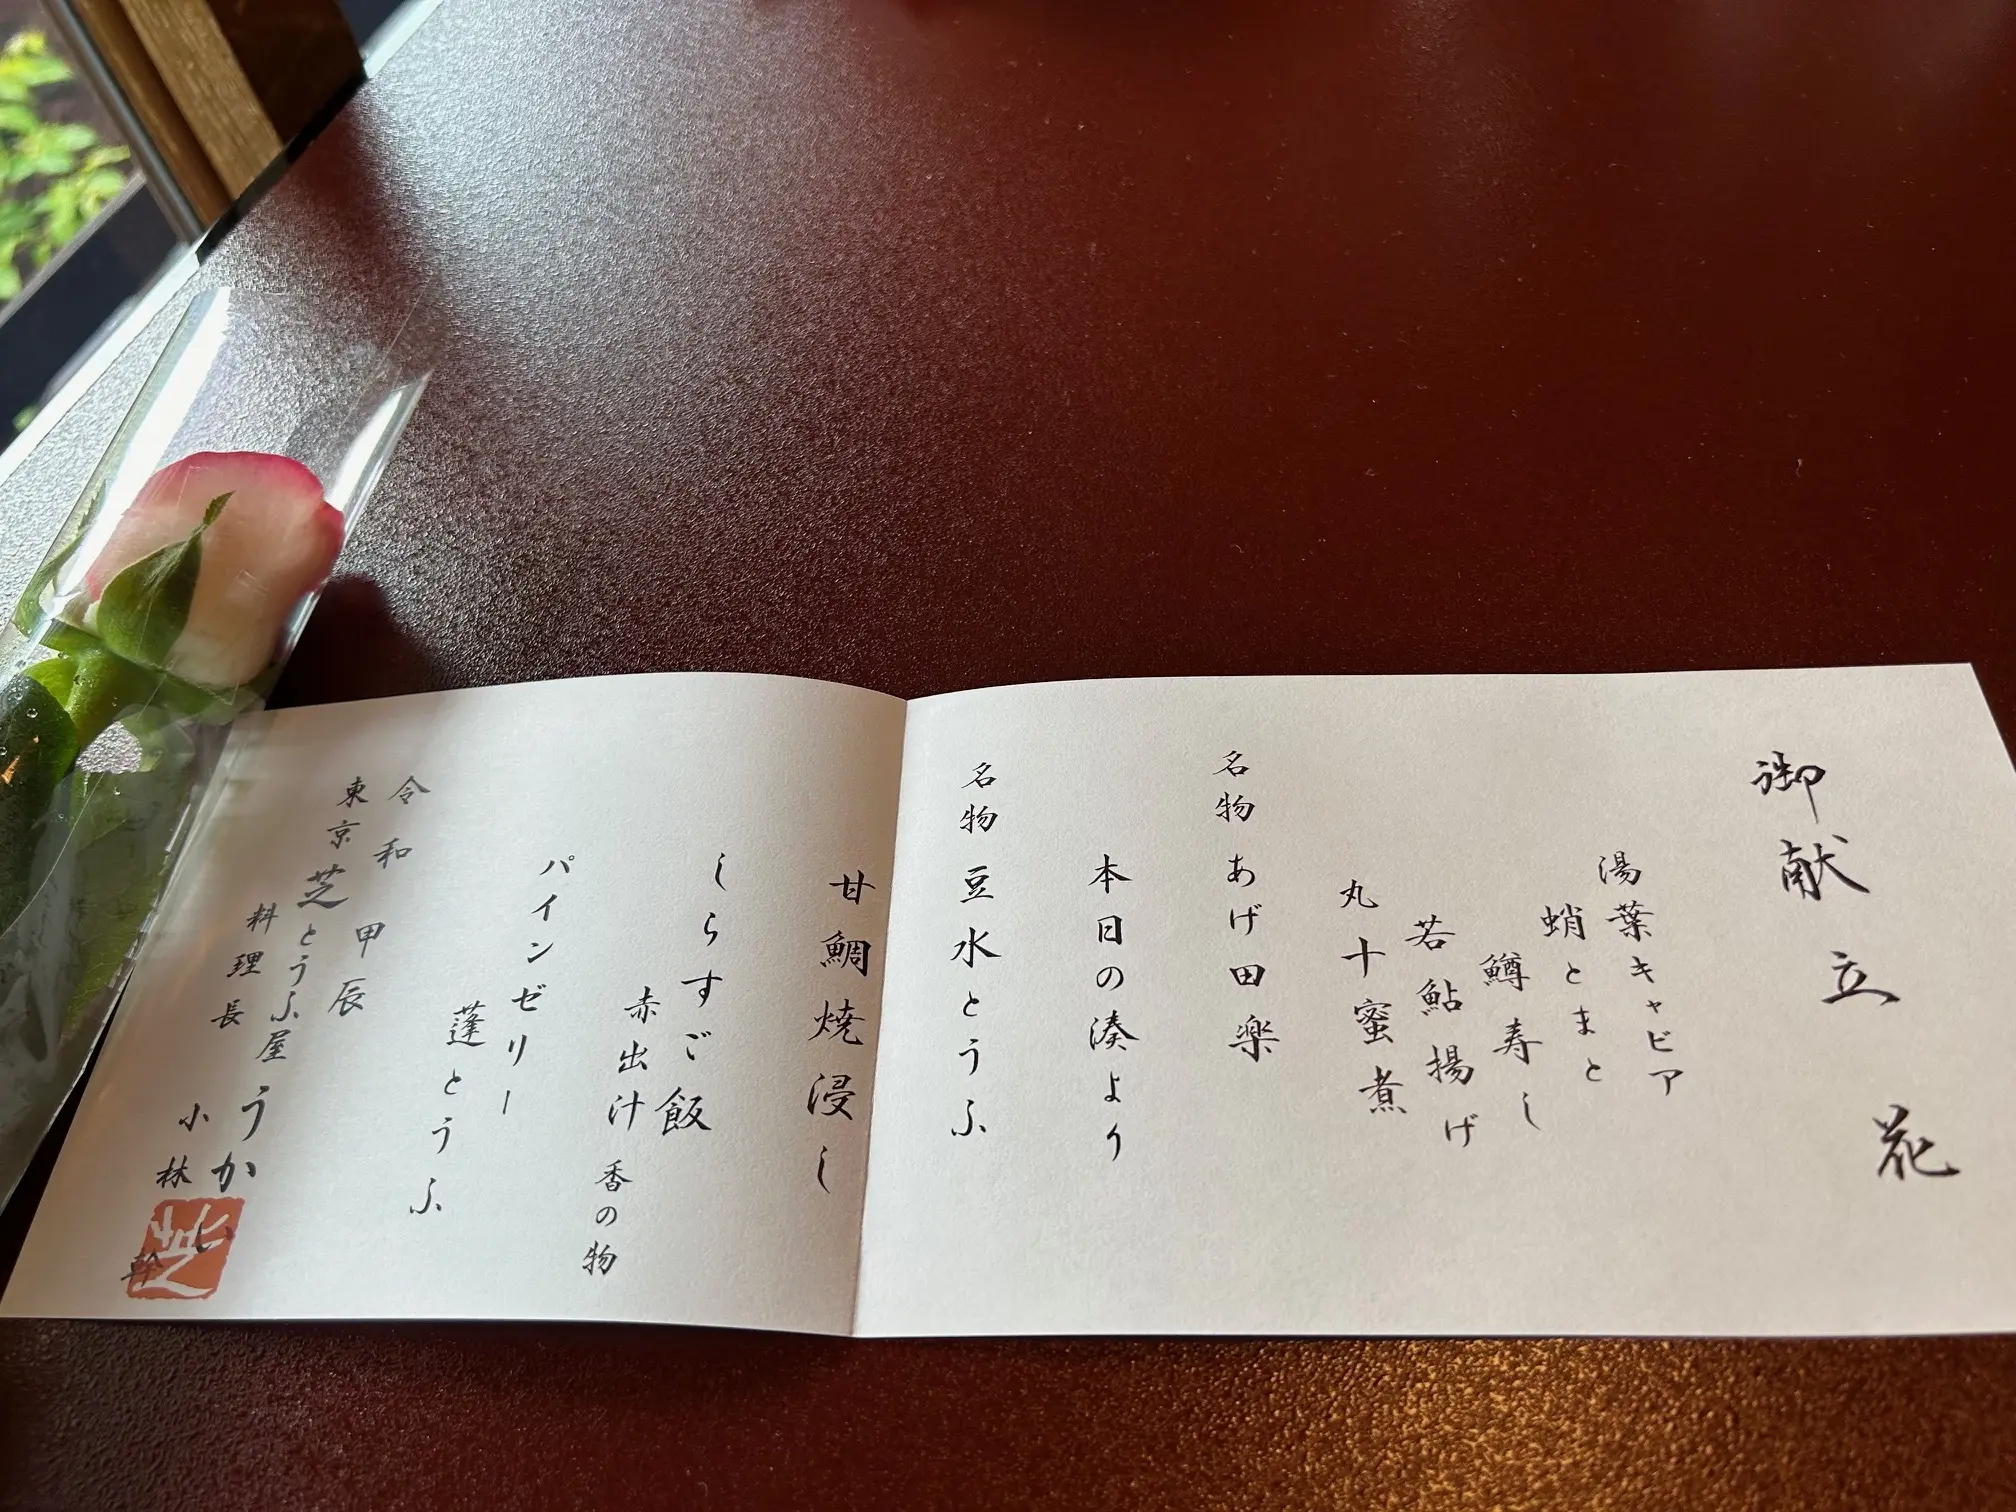 御献立 花
湯葉キャビア
蛸とまと
鱒寿し
若鮎揚げ
丸十蜜煮
名物 あげ田楽
本日の湊より
名物 豆水とうふ
甘鯛焼浸し
しらすご飯
赤出汁 香の物
パインゼリー
蓬とうふ
令和甲辰
東京芝とうふ屋うかい
料理長 小林 幹
芝